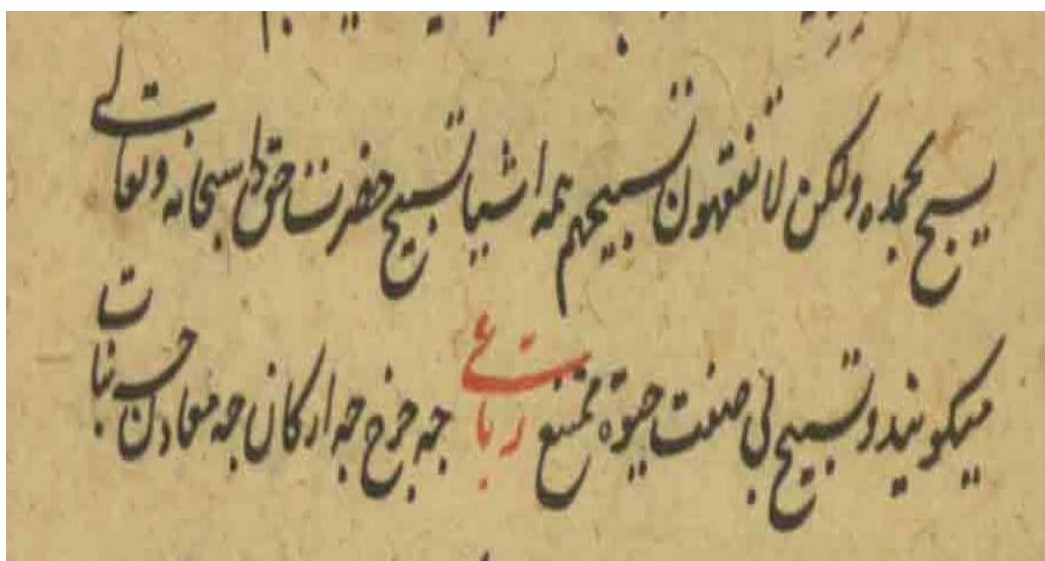 یسبح بحمده ولکن لا تفقهون تسبیحهم همه اشیا تسبیح حضرت حق سبحانه وتعالی
میکویند و تسبیح بی صفت حیوة ممتنع رباعی جه جرخ جه ارکان جه معادن جه نبات